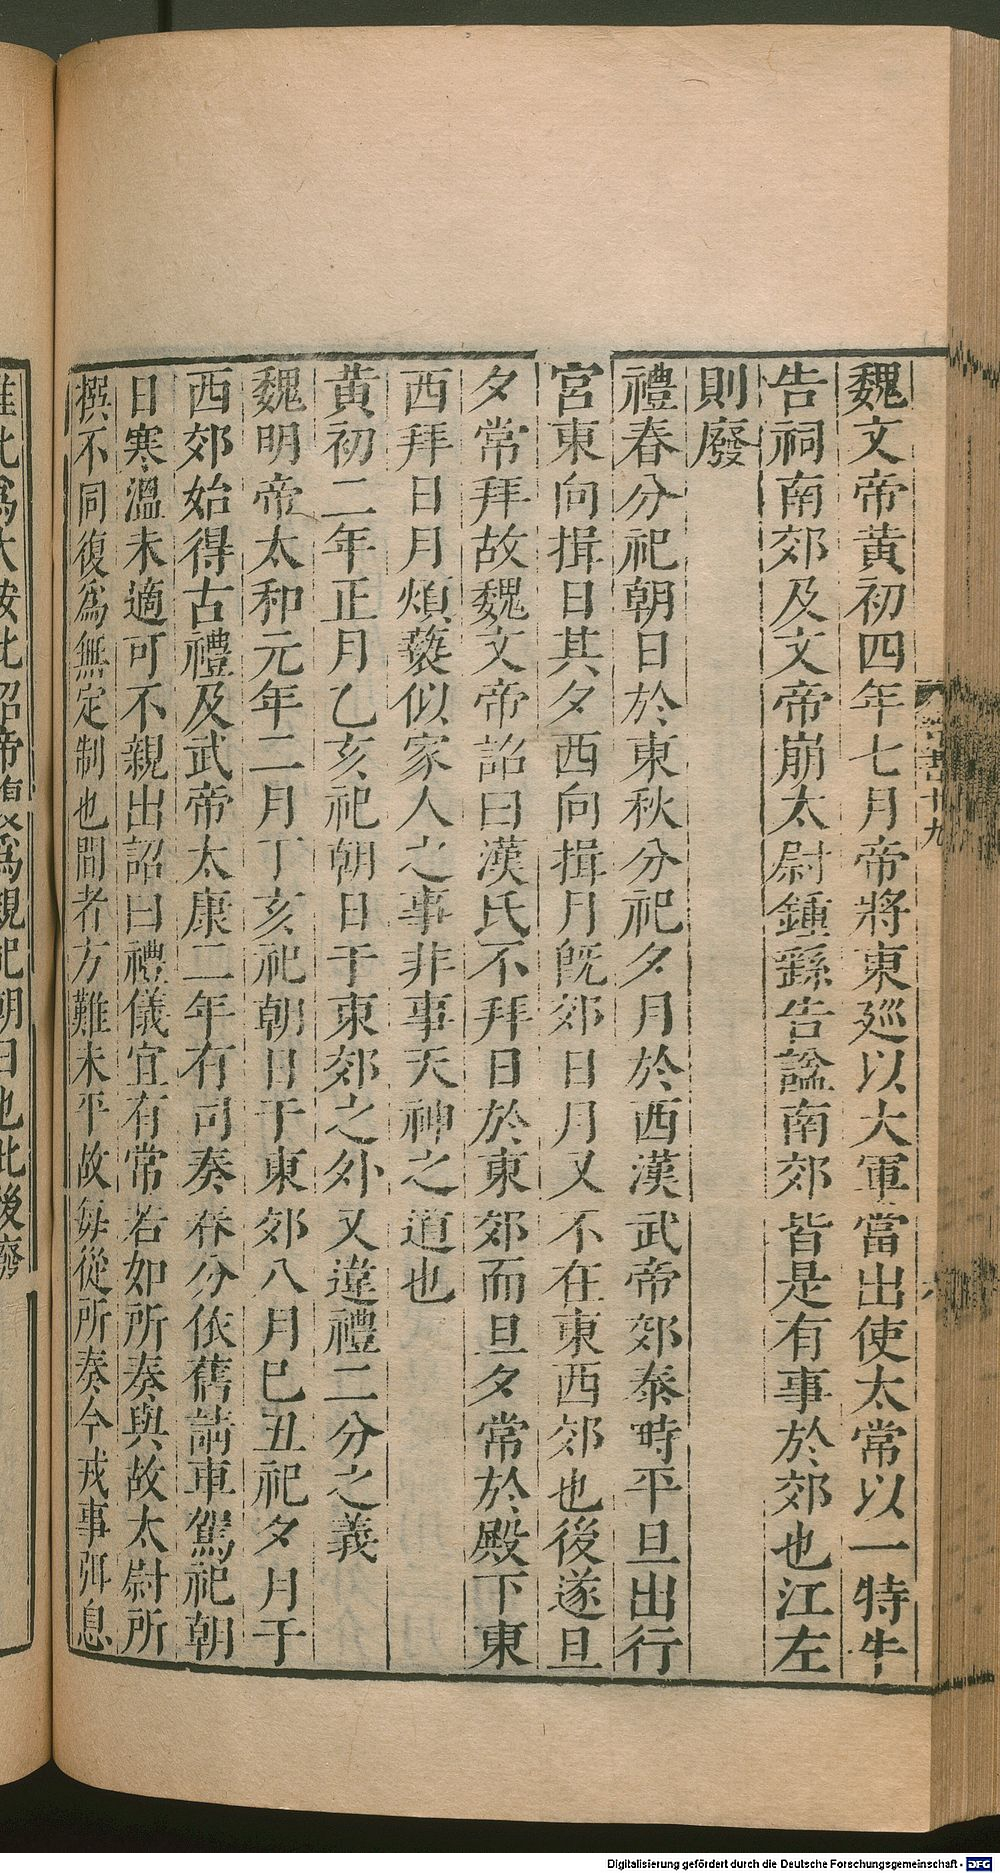 魏文帝黃初四年七月帝將東廵以大軍當出使太常以一特牛
告祠南郊及文帝崩太尉鍾繇告諡南郊皆是有事於郊也江左
則廢
禮春分祀朝日於東秋分祀夕月於西漢武帝郊泰時平旦出行
宮東向揖日其夕西向揖月旣郊日月又不在東西郊也後遂旦
夕常拜故魏文帝詔曰漢氏不拜日於東郊而旦夕常於殿下東
西拜日月煩䙝似家人之事非事天神之道也
黃初二年正月乙亥祀朝日于東郊之外又違禮二分之義
魏明帝太和元年二月丁亥祀朝日于東郊八月己丑祀夕月于
西郊始得古禮及武帝太康二年有司奏春分依舊請車駕祀朝
日寒溫未適可不親出詔曰禮儀宜有常若如所奏與故太尉所
撰不同復爲無定制也間者方難未平故每從所奏今戎事弭息
惟此爲大按此詔帝復爲親祀朝日也此後廢
晉書十九
六
Digitalisierung gefördert durch die Deutsche Forschungsgemeinschaft - DFG